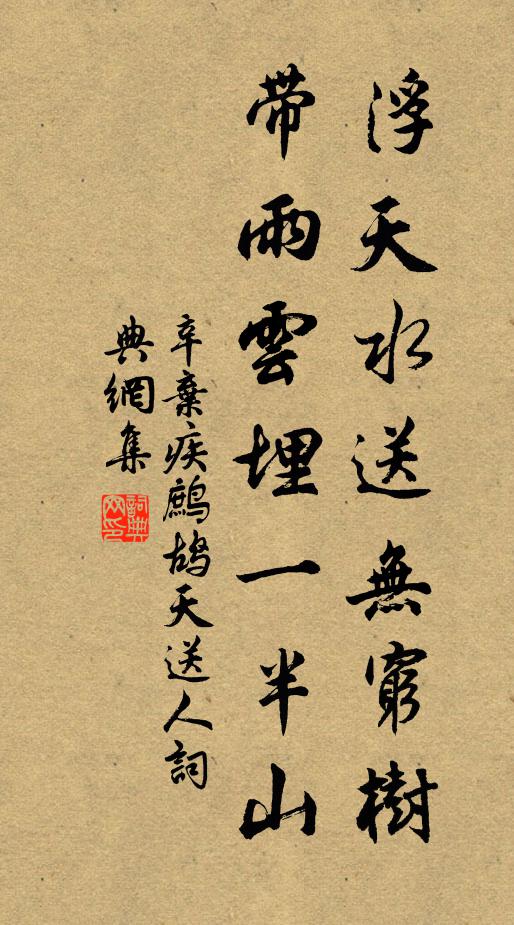 浮天水送無窮樹
帶雨雲埋一半山
辛棄疾鷓鴣天送人詞
典網集
詞典網印